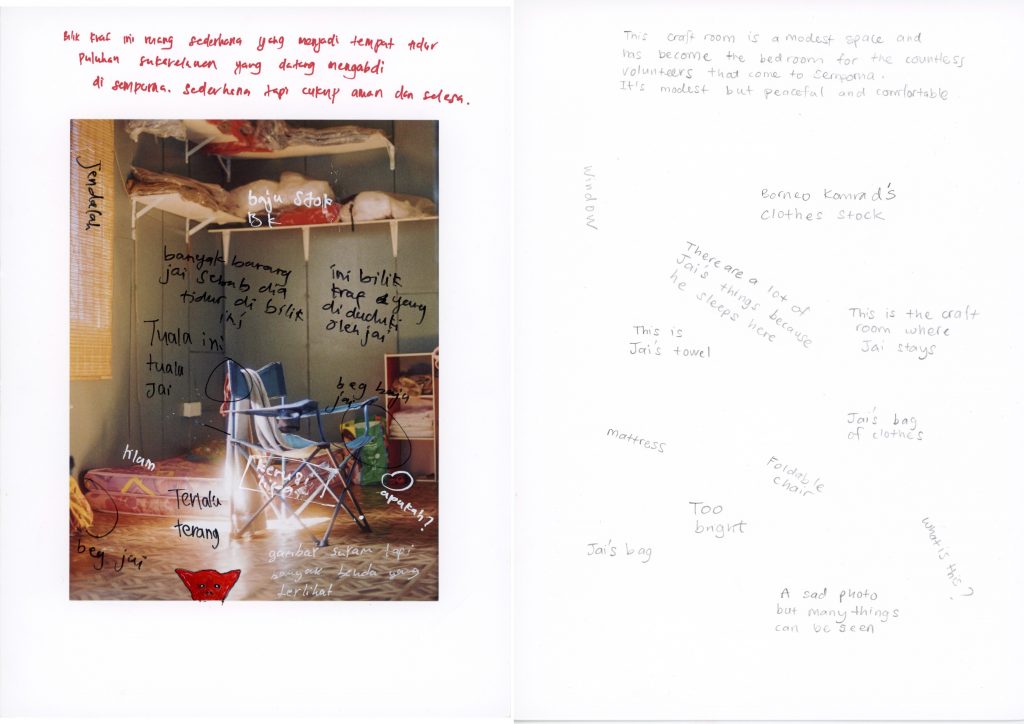 Bilik kraf ini ruang sederhana yang menjadi tempat tidur
puluhan sukarelawan yang datang mengabdi
di semporna. Sederhana tapi cukup aman dan selesa.
Jendelah
baju stok
BK
banyak barang
jai sebab dia
tidur di bilik
ini
ini bilik
kraf yang
diduduki
oleh jai
Tuala ini
tuala
jai
beg baju
jai
tilam
kerusi
apakah?
Terlalu
terang
beg jai
gambar suram tapi
banyak benda yang
terlihat
This craft room is a modest space and
has become the bedroom for the countless
volunteers that come to Semporna.
It's modest but peaceful and comfortable
Window
Borneo Komrad's
clothes stock
There are a lot of
Jai's things because
he sleeps here
This is
Jai's towel
This is the craft
room where
Jai stays
Jai's bag
of clothes
mattress
Foldable
chair
Too
bright
Jai's bag
What is this?
A sad photo
but many things
can be seen